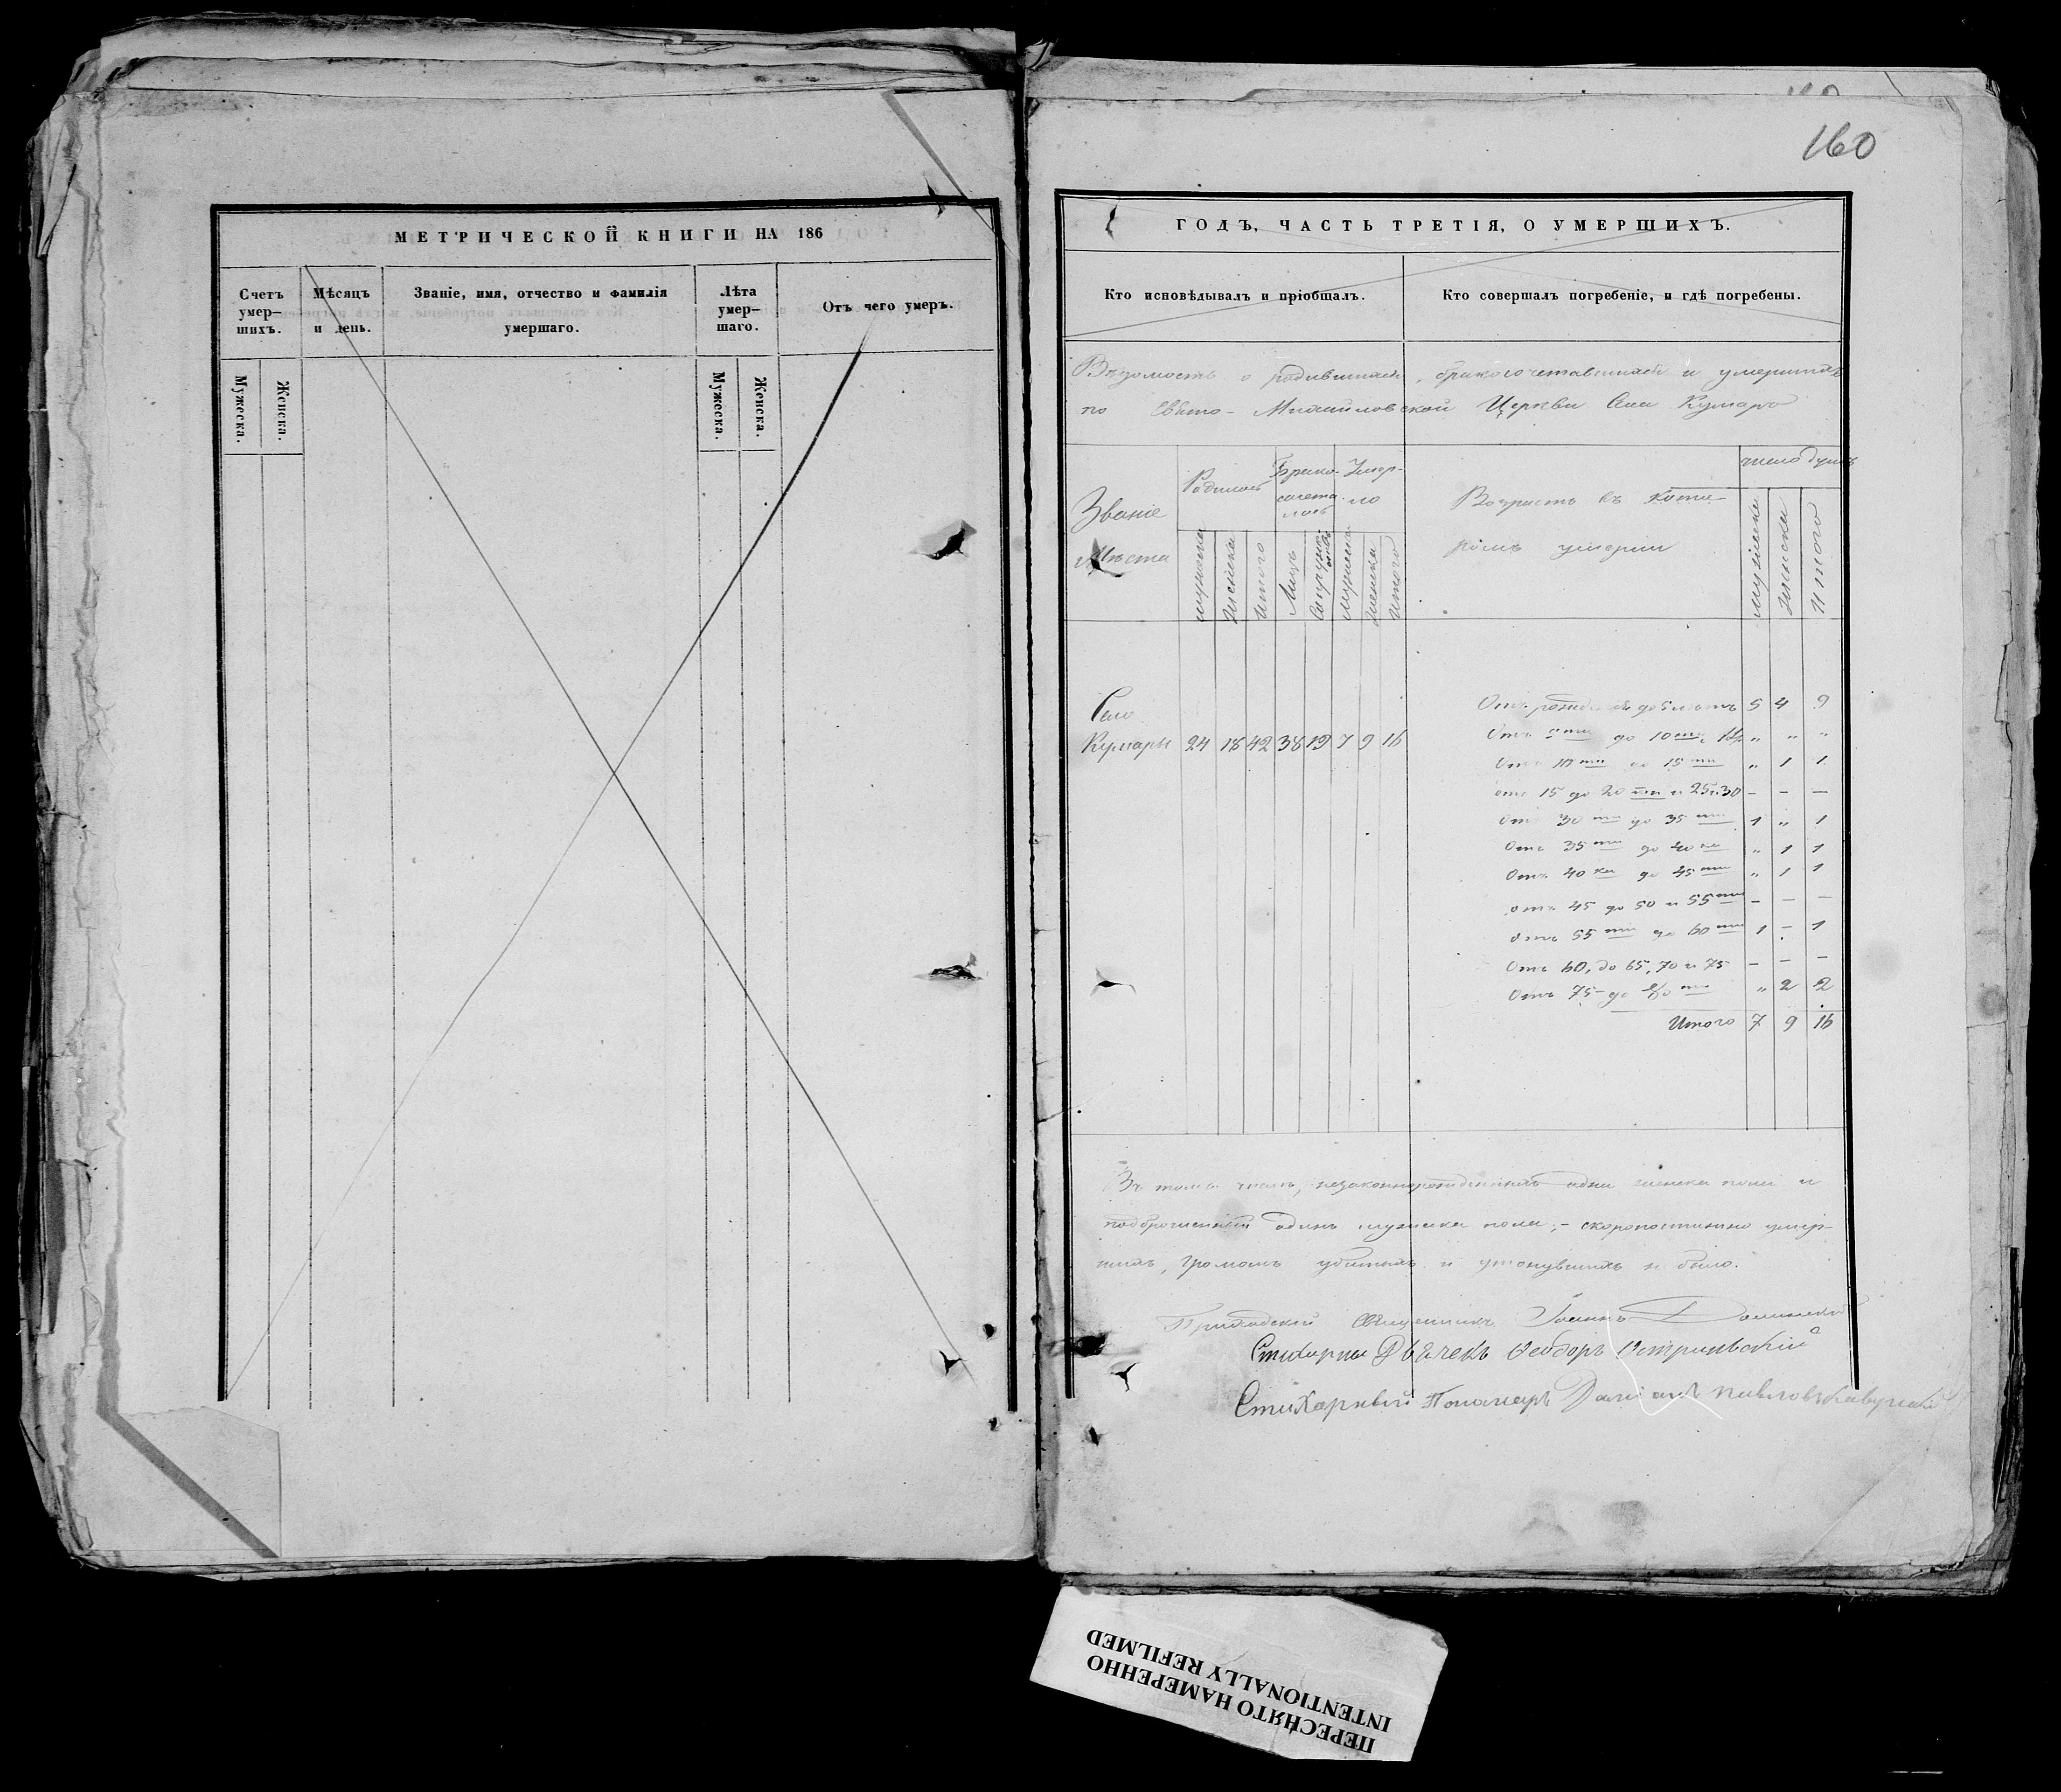 МЕТРИЧЕСКОЙ КНИГИ НА 186
Счетъ умер—шихъ.
Мѣсяцъ и день.
Званіе, имя, отчество и фамилія умершаго.
Лѣта умер—шаго.
Отъ чего умеръ.
Мужеска.
Женска.
Мужеска.
Женска.
160
ГОДЪ, ЧАСТЬ ТРЕТІЯ, О УМЕРШИХЪ.
Кто исповѣдывалъ и пріобщалъ.
Кто совершалъ погребеніе, и гдѣ погребены.
Вѣдомость о родившихся, бракосочетавшихся и умершихъ
по Свято-Михайловской Церкви Села Кумары
Званіе Мѣста
Родилось
Брако-сочета-лось
Умер-ло
Возрастъ въ кото-
ромъ умерли
число душъ
мужеска
женска
итого
Лицъ
Супружествъ
мужеска
женска
итого
мужеска
женска
итого
Село
Кумары 24 18 42 38 19 7 9 16
Отъ рожденія до 5 лѣтъ 5 4 9
Отъ 5ти до 10ти „ „ „
Отъ 10ти до 15ти „ 1 1
отъ 15 до 20ти и 25 и 30 — — —
Отъ 30ти до 35ти 1 „ 1
Отъ 35ти до 40ка „ 1 1
Отъ 40ка до 45ти „ 1 1
отъ 45 до 50 и 55ти — — —
отъ 55ти до 60ти 1 — 1
Отъ 60, до 65, 70 и 75 — — —
Отъ 75 до 80ти „ 2 2
Итого 7 9 16
Въ томъ числѣ, незаконнорожденныхъ одна женска пола и
подброшенный одинъ мужеска пола; — скоропостижно умер-
шихъ, громомъ убитыхъ и утонувшихъ не было.
Приходскій Священникъ Іоаннъ
Стихарный Дьячекъ Ѳеодоръ
Стихарный Пономарь Павловъ
ПЕРЕСНЯТО НАМЕРЕННО
INTENTIONALLY REFILMED